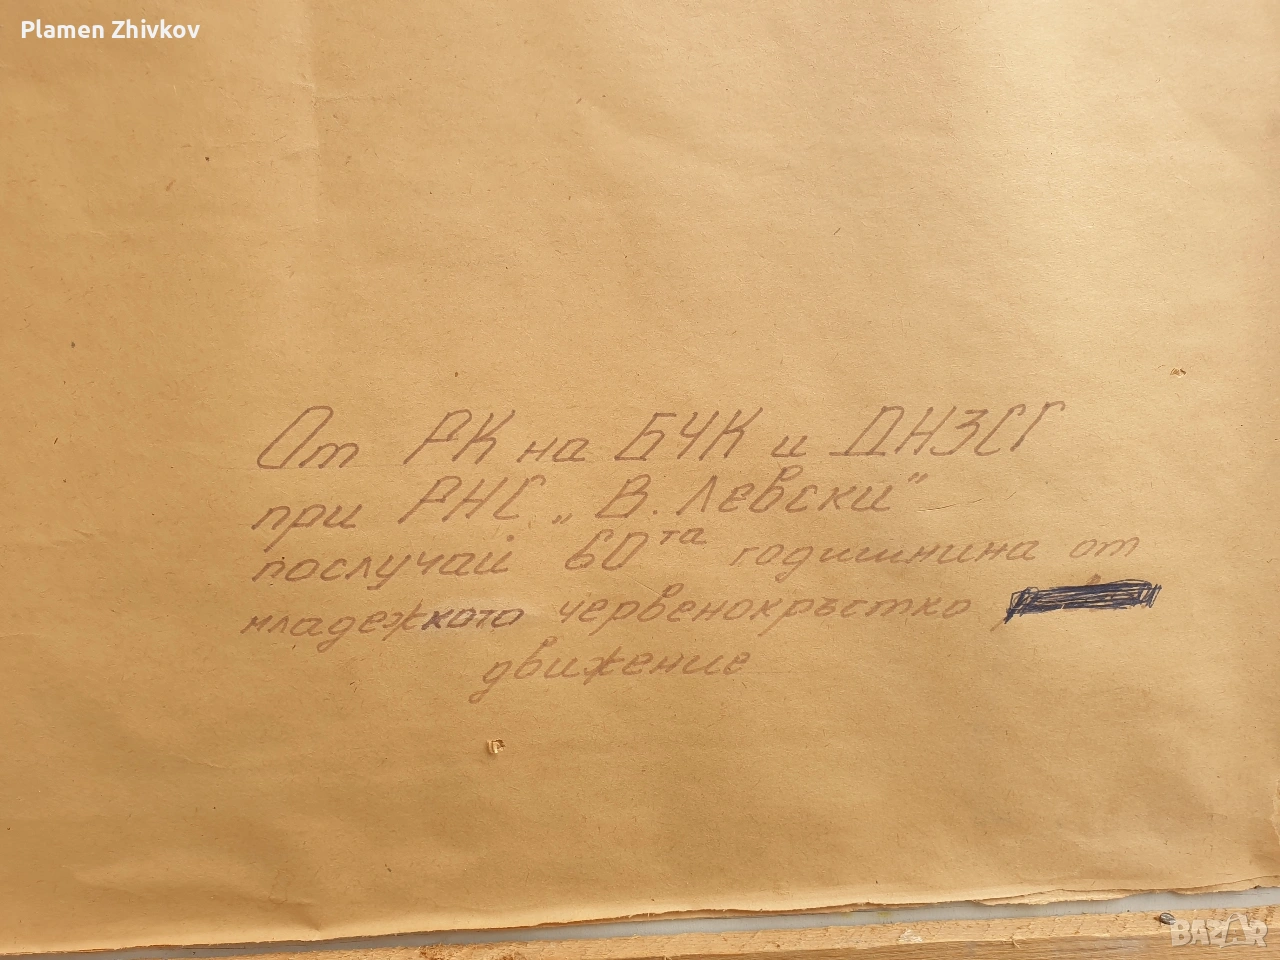 Plamen Zhivkov
От РК на БЧК и ДНЗСГ
при РНС „В. Левски"
послучай 60та годишнина от
младежкото червенокръстко
движение
BAZAR